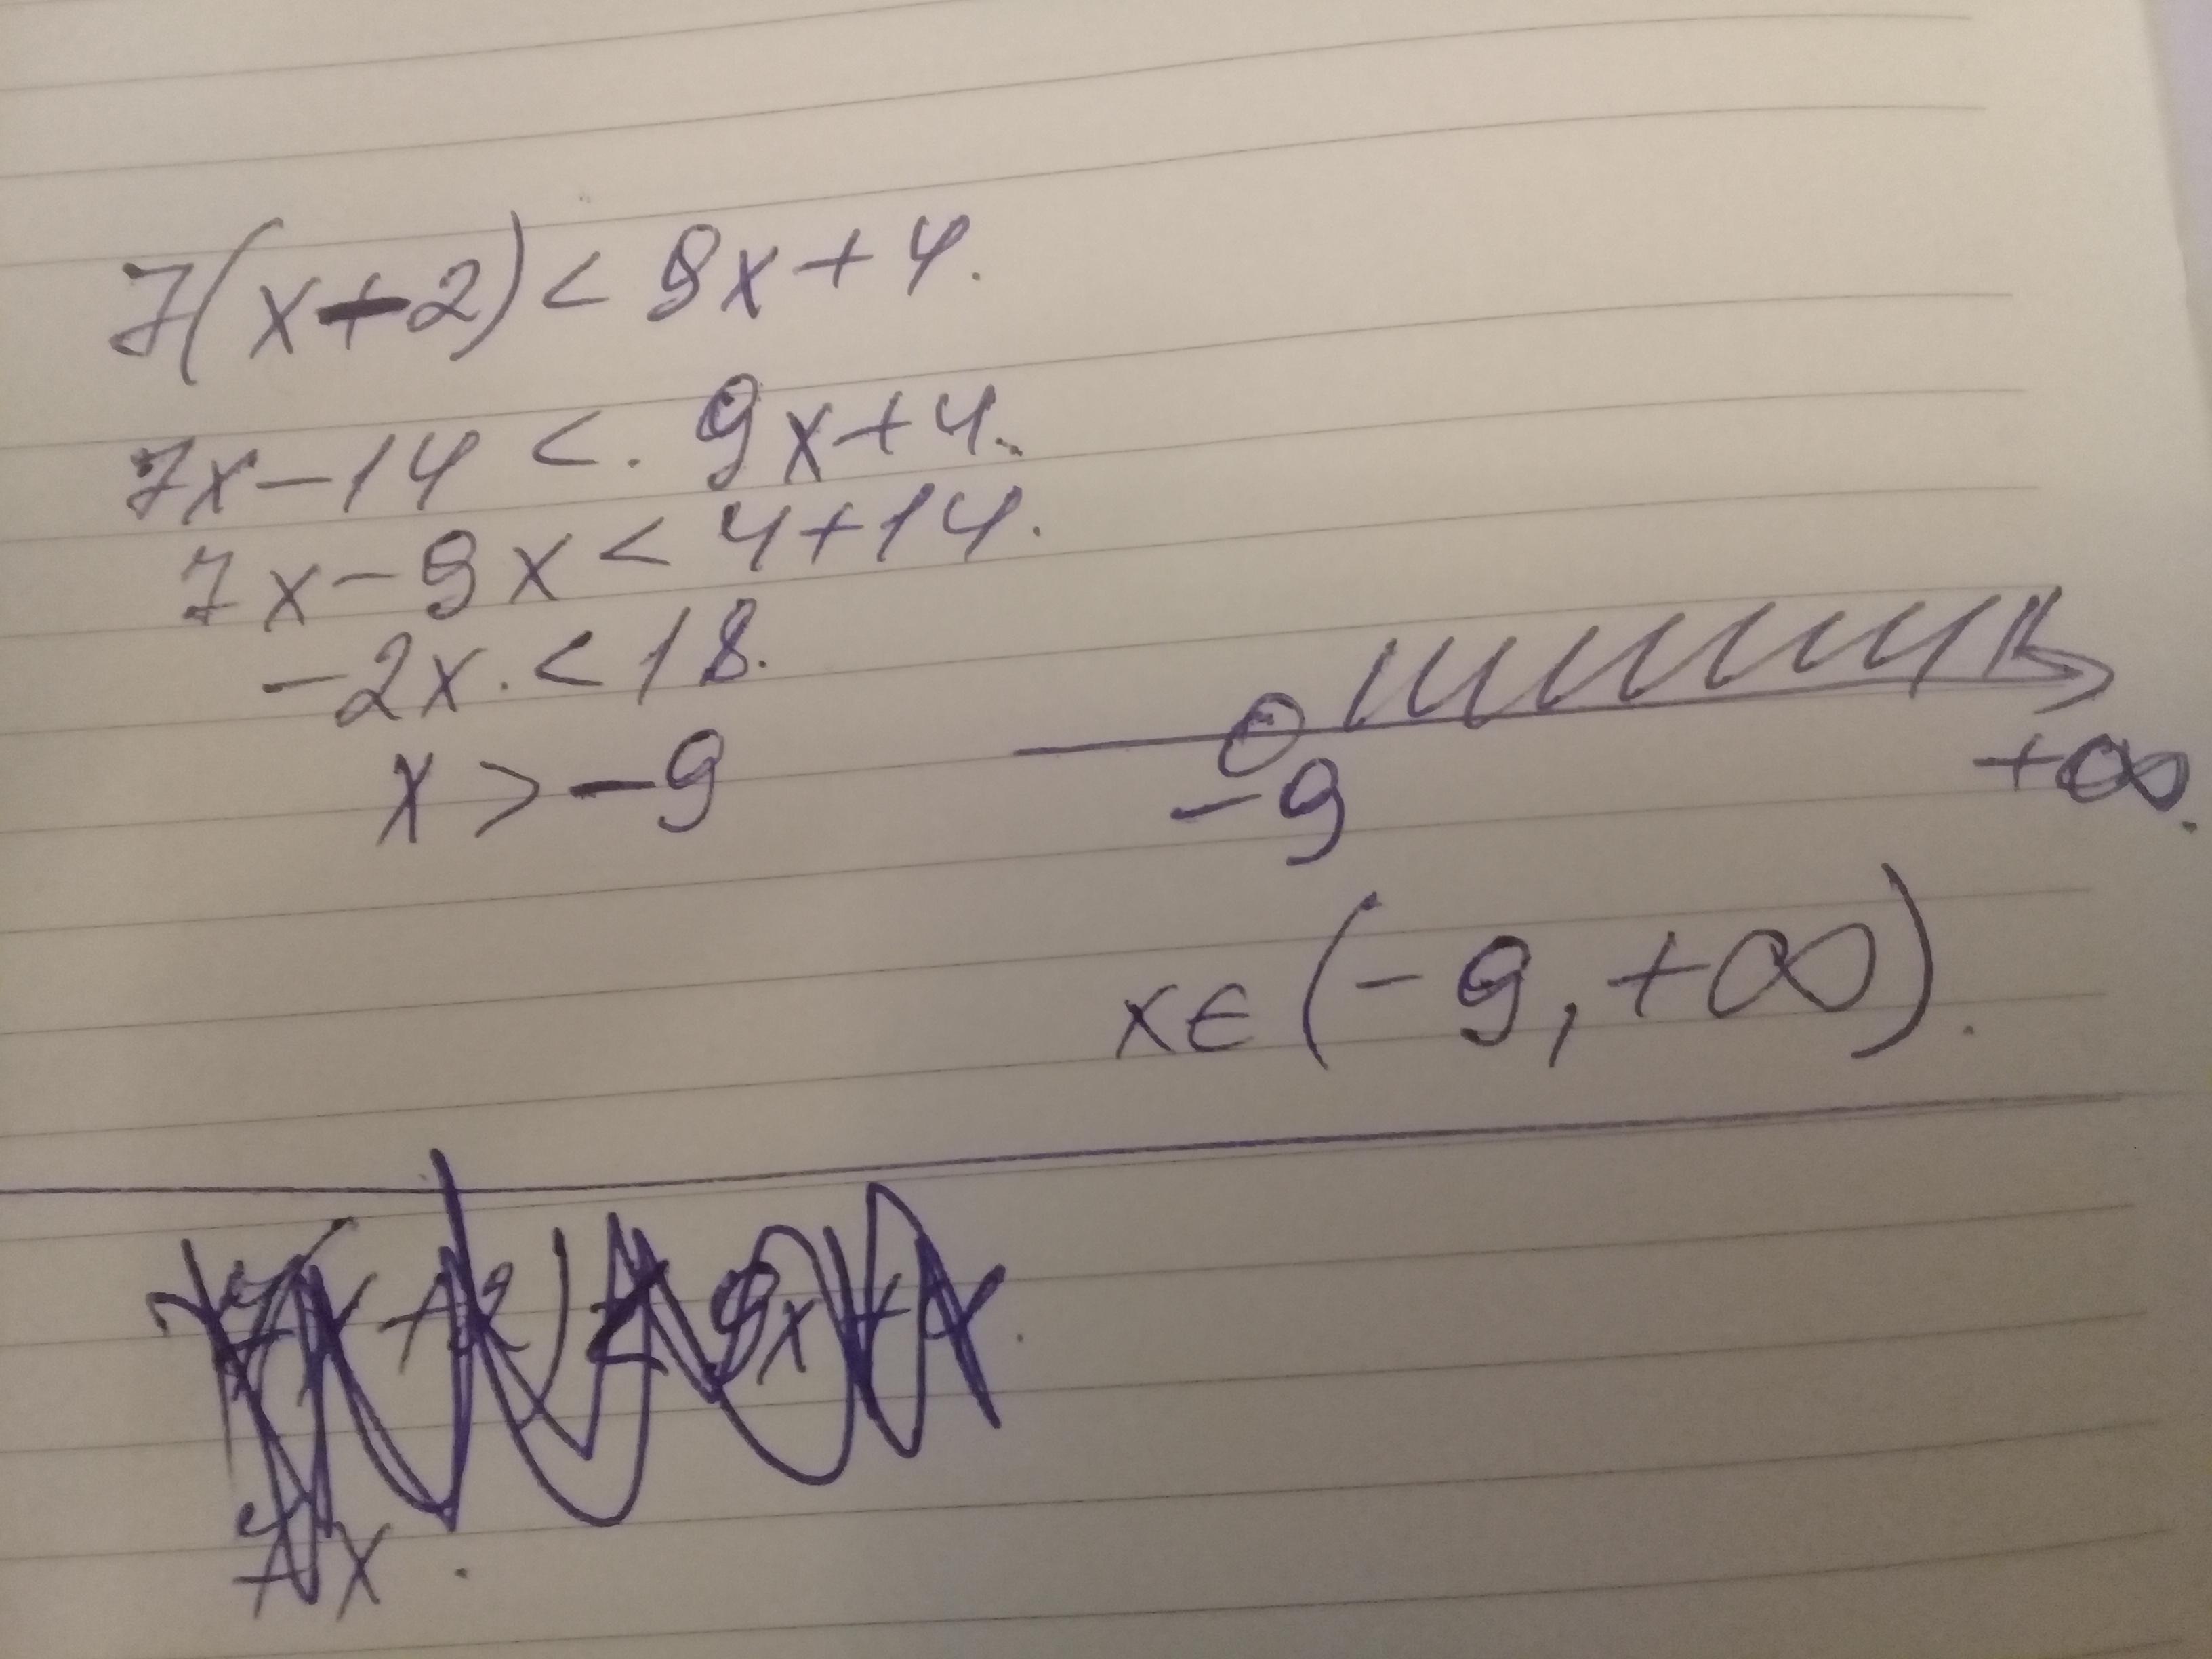 7(x-2)<9x+4.
7x-14<.9x+4.
7x-9x<4+14.
-2x.<18.
x>-9
-9 +∞.
x∈(-9,+∞).
7x.